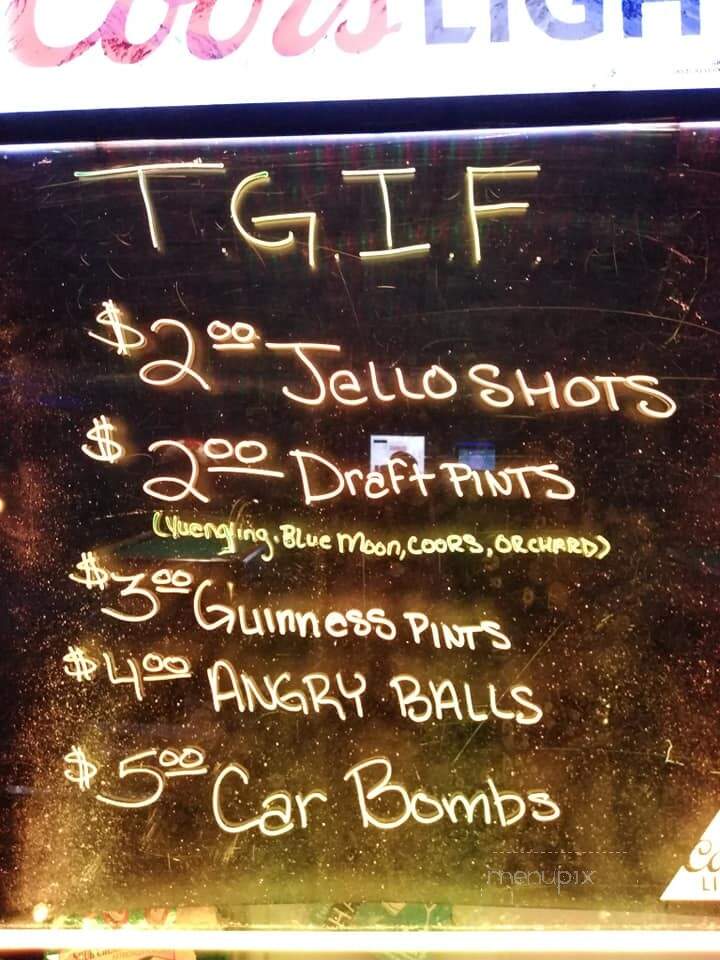 Coors LIGH
T.G.I.F.
$2.00 Jello SHOTS
$2.00 Draft PINTS
(Yuengling, Blue Moon, COORS, ORCHARD)
$3.00 Guinness PINTS
$4.00 ANGRY BALLS
$5.00 Car Bombs
menupix
LI